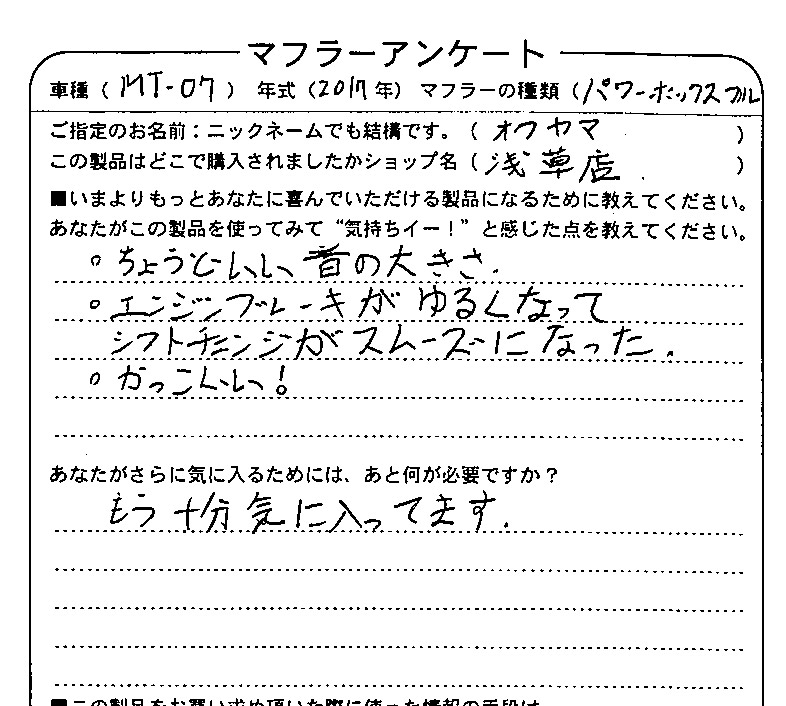 マフラーアンケート
車種（MT-07） 年式（2017年） マフラーの種類（パワーボックスフル
ご指定のお名前：ニックネームでも結構です。（オクヤマ）
この製品はどこで購入されましたかショップ名（浅草店.）
■いまよりもっとあなたに喜んでいただける製品になるために教えてください。
あなたがこの製品を使ってみて“気持ちイー！”と感じた点を教えてください。
○ちょうどいい音の大きさ.
○エンジンブレーキがゆるくなって
シフトチェンジがスムーズになった.
○かっこいい!
あなたがさらに気に入るためには、あと何が必要ですか？
もう十分気に入ってます.
■この製品をお買い求め頂いた際に使った情報の手段は